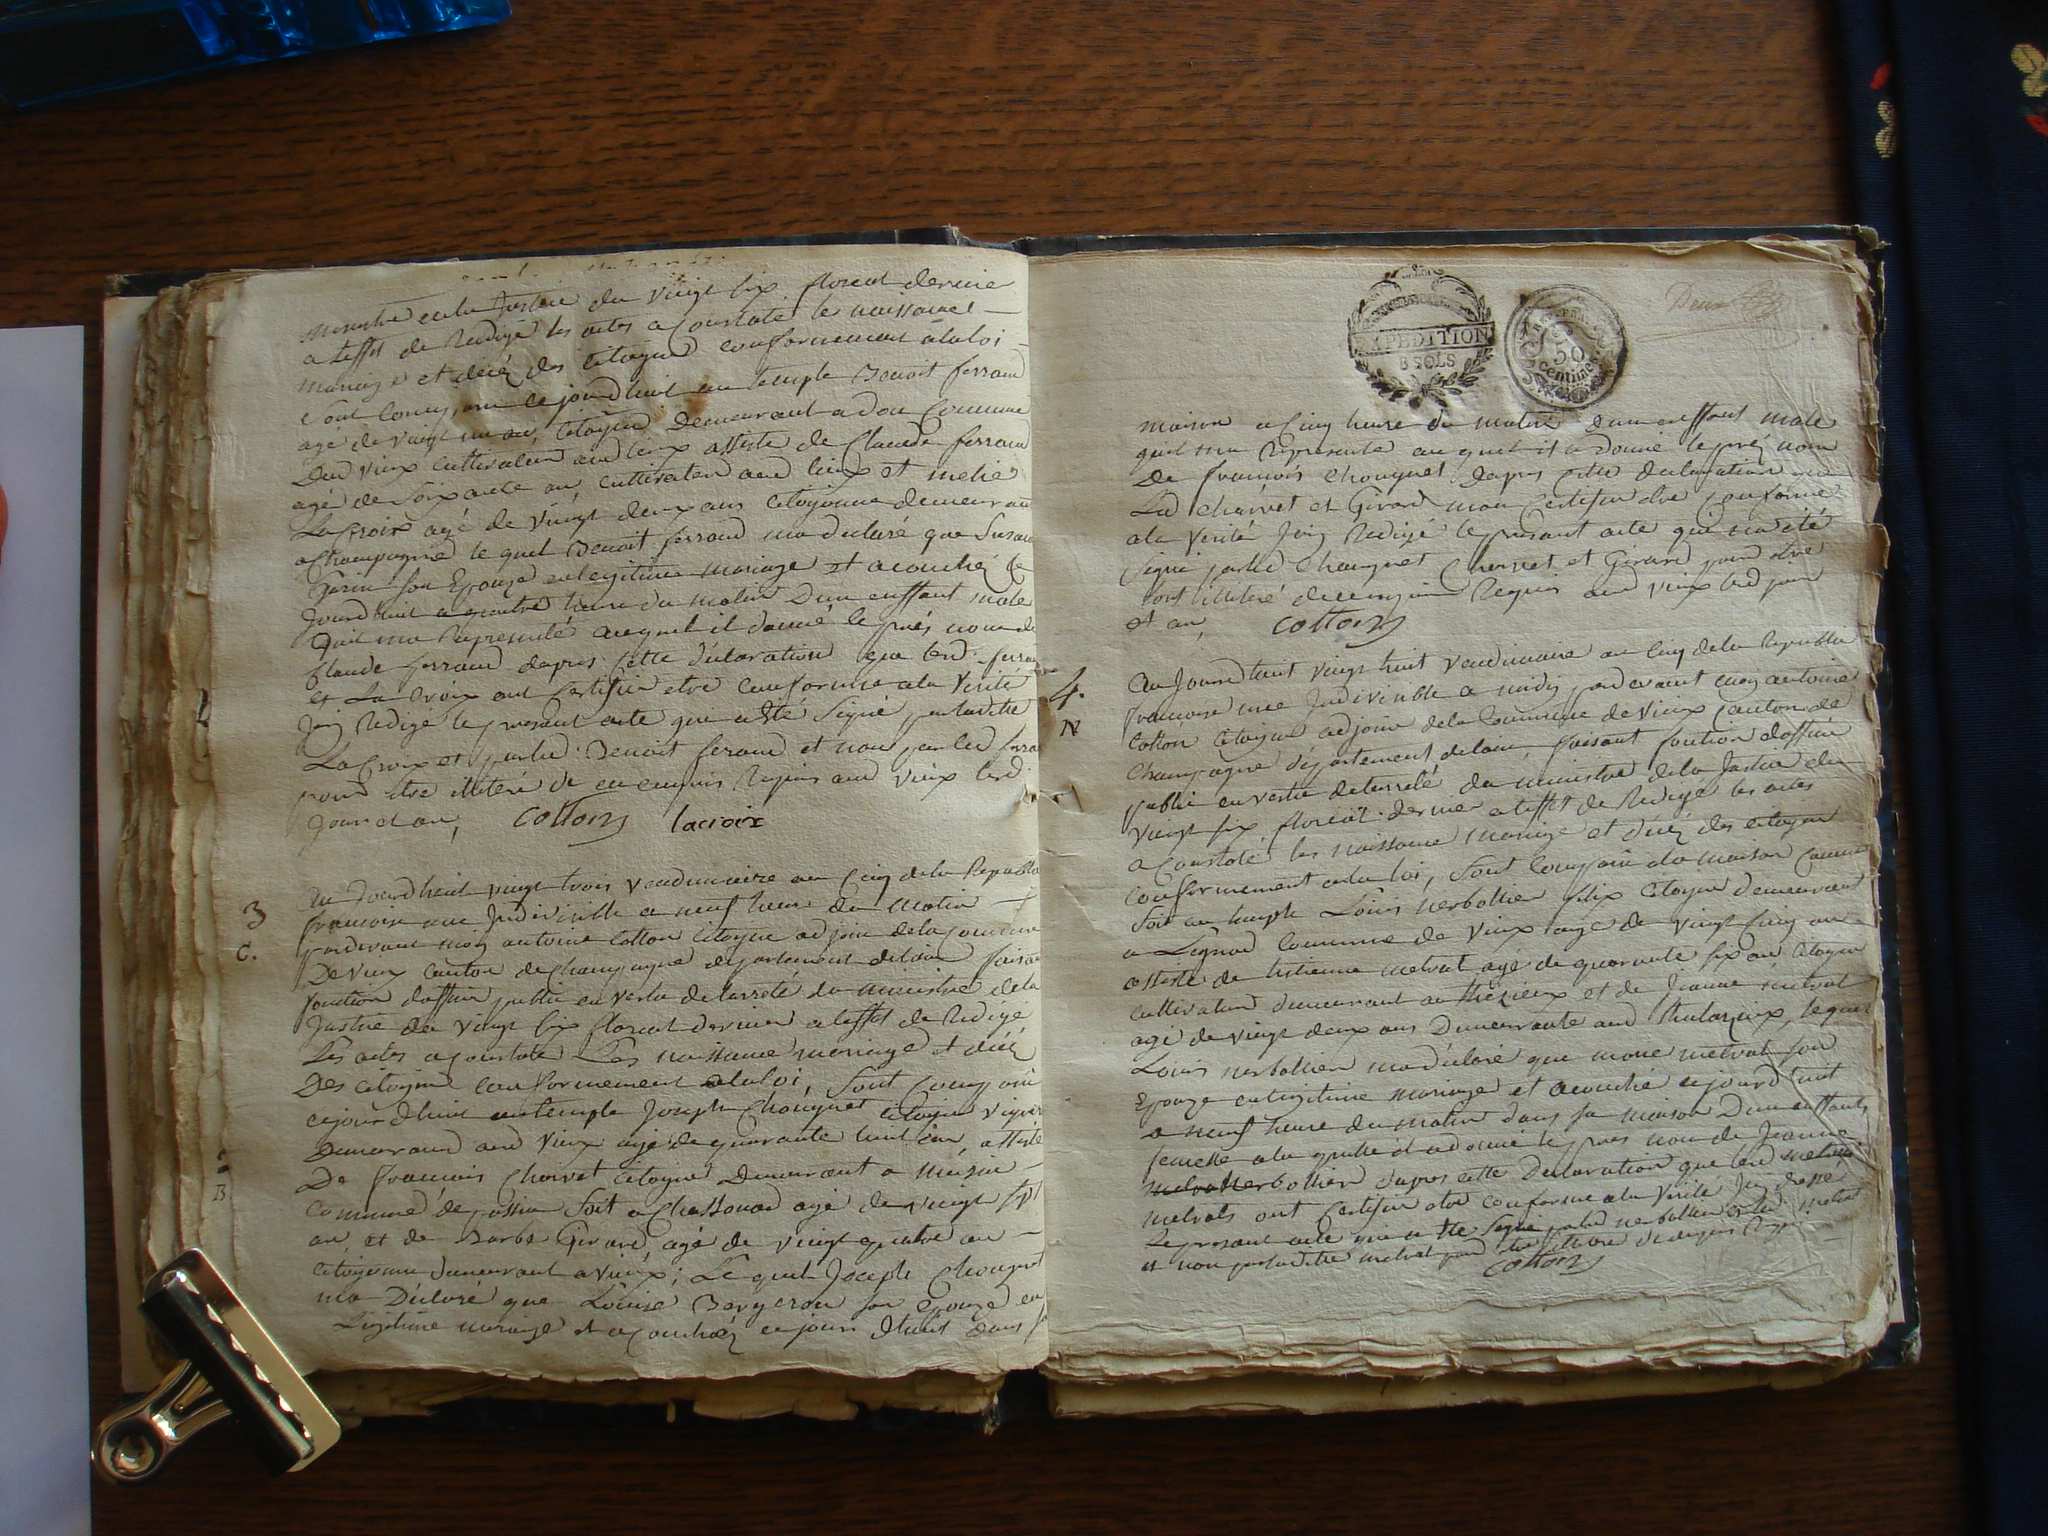 ministre de la Justice du vingt six floreal dernier
a leffet de Redigé les actes a Constaté le naissance
mariage et décé des Citoyens conformement a la loi
ce jourd'huit au temple Benoit ferraud
agé de vingt un an, Citoyen Demeurant a don Commune
Deu vieux cultivateur au lieux assisté de Claude ferraud
agé de soixante an, cultivateur aud lieux et melie
Lacroix agé de vingt deux ans Citoyenne demeurant
a Champagne le quel Benoit ferraud ma déclaré que Susanne
son Epouze en legitime mariage et acouchée ce
Jourd'huit a quatre heure du matin D'un enffant male
quil ma Représenté auquel il donné le prés nom de
Claude ferraud dapres cette déclaration que led. ferraud
et La Croix ont certifié etre conforme a la vérité
Jay Redigé le present acte que a été Signé par ladite
La Croix et par led. Benoit feraud et non par led ferraud
pour etre illiteré de ce enquis Requis aud vieux led.
Jour et an, Cotton lacroix
3
C.
Au Jourd'huit vingt trois vendimiaire an Cinq de la Republique
francoise une Indivisible a neuf heure du matin
pardevant moy antoine Cotton Citoyen adjoin de la Commune
De vieux canton de Champagne departement delain faisant
fonction daffice public en vertu de larreté du ministre de la
Justice du vingt six floreal dernier a leffet de Redigé
Les actes a Constaté Les naissance mariage et décé
Des Citoyens conformement a la loi, sont Comparu
cejour dhuit au temple Joseph Chouquet citoyen vigneron
Demeurant aud vieux agé de quarante huit an, assisté
De francois Charvet Citoyen Demeurant a
Commune de soit a Chassonod agé de vingt sept
an et de Barbe Girard, agé de vingt quatre an
citoyenne demeurant a vieux; Le quel Joseph Chouquet
ma Déclaré que Louise Bergeron son Epouze en
Legitime mariage et a couchéz ce jour dhuit dans sa
EXPEDITION
8 SOLS
50
centimes
Deux
maison a Cinq heure du matin d'un enffant male
quil ma Représenté auquel il a donné le pré nom
De francois Chouquet dapres cette declaration
Led Charvet et Girard mon certifié etre conforme
a la verité Jay Redigé le present acte qui na été
signé par led Chouquet Charvet et Girard pour etre
tout illiteré de ce enquis Requis aud vieux led jour
et an, Cotton
4.
N
Au Jourd'huit vingt huit vendimiaire an Cinq de la Republique
francoise une Indivisible a midy pardevant moy antoine
Cotton Citoyen adjoin de la Commune de vieux Canton de
Champagne département delain, faisant fonction daffice
public en vertu de larreté du ministre de la Justice du
vingt six floreal dernier a leffet de Redigé les actes
a Constaté les naissance mariage et décéz des citoyen
conformement a la loi, sont Comparu a la maison Commune
soit au temple Louis nerbollier filix Citoyen demeurant
a Lognod Commune de vieux agé de vingt Cinq an
assisté de Estienne metrat agé de quarante six an Citoyen
cultivateur demeurant au thézieux et de Jeanne metrat
agé de vingt deux ans Demeurante aud, lequel
Louis nerbollier ma déclaré que metrat son
Epouze en legitime mariage et acouché cejourd huit
a neuf heure du matin dans sa maison D'un enffant
femelle a la quelle il a donné le prés nom de Jeanne
nerbollier dapres cette Declaration que led
metrats ont certifié etre conforme a la vérité Jay dressé
Le present acte qui a été signé par led nerbollier et led metrat
et non par ladite metrat pour etre illiteré de ce enquis Requis
Cotton